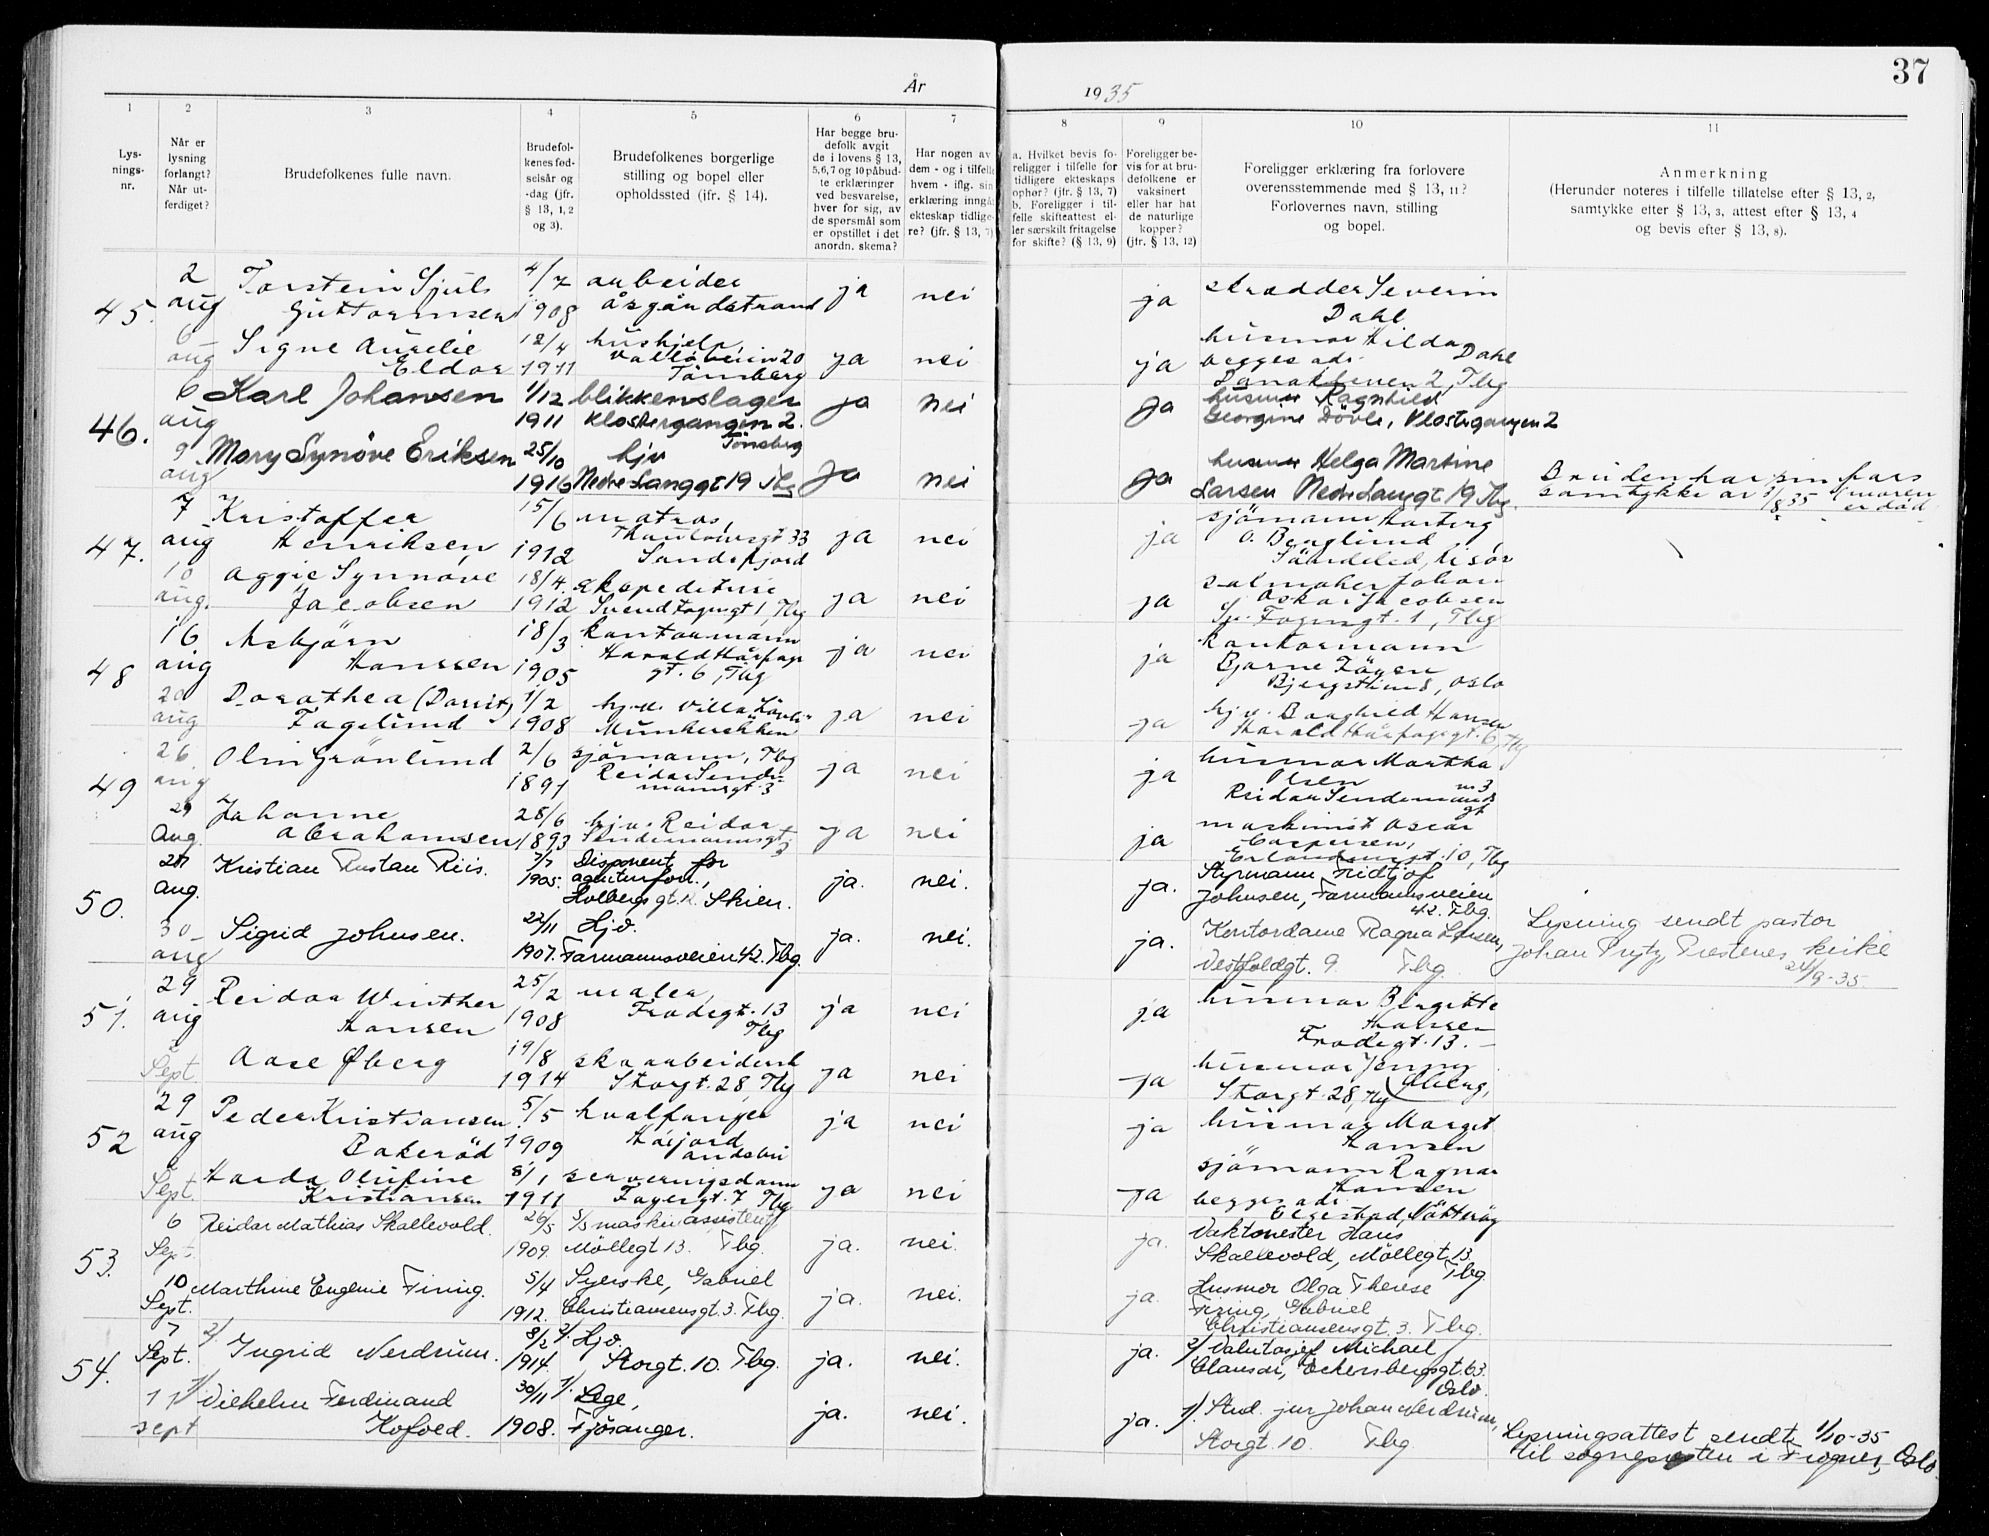 År 1935
37
1 2 3 4 5 6 7 8 9 10 11
Lys-
nings-
nr.
Når er
lysning
forlangt?
Når ut-
ferdiget?
Brudefolkenes fulle navn.
Brudefol-
kenes fød-
selsår og
-dag (jfr.
§ 13, 1, 2
og 3).
Brudefolkenes borgerlige
stilling og bopel eller
opholdssted (ifr. § 14).
Har begge bru-
defolk avgit
de i lovens § 13,
5,6,7 og 10 påbud-
te erklæringer
ved besvarelse,
hver for sig, av
de spørsmål som
er opstillet i det
anordn. skema?
Har nogen av
dem - og i tilfelle
hvem - iflg. sin
erklæring inngå
ekteskap tidlige-
re? (jfr. § 13, 7)
a. Hvilket bevis fo-
religger i tilfelle for
tidligere ekteskaps
ophør? (jfr. § 13, 7)
b. Foreligger i til-
felle skifteattest el-
ler særskilt fritagelse
for skifte? (§ 13, 9)
Foreligger be-
vis for at bru-
defolkene er
vaksinert
eller har hat
de naturlige
kopper?
(jfr. § 13, 12)
Foreligger erklæring fra forlovere
overensstemmende med § 13, 11?
Forlovernes navn, stilling
og bopel.
Anmerkning
(Herunder noteres i tilfelle tillatelse efter § 13, 2,
samtykke efter § 13, 3, attest efter § 13, 4
og bevis efter § 13, 8).
45.
2 aug Torstein Sjuls Guttormsen 4/7 1908 arbeider Åsgårdstrand ja nei ja skredder Severin Dahl
6 aug Signe Aurelie Eldor 12/4 1911 hushjelp, Vallöveien 20 Tönsberg ja nei ja husmor Hilda Dahl begges adr. 2, Tbg
46.
6 aug Karl Johansen 1/12 1911 blikkenslager Klostergangen 2. Tönsberg ja nei ja husmor Ragnhild Georgine Dövle, Klostergangen 2
9 aug Mary Synöve Eriksen 25/10 1916 hjv Nedre Langgt 19 Tbg ja nei ja husmor Helga Martine Larsen Nedre Langgt 19 Tbg.
Bruden har sin fars
samtykke av 3/8 35 moren
er död
47.
7 aug Kristoffer Henriksen 15/6 1912 matros, Thaulowsgt 33 Sandefjord ja nei ja sjömann Harberg O. Berglund, Söndeled, Risör
10 aug. Aggie Synnöve Jacobsen 18/4. 1912 ekspeditrise Svend Foynsgt 1, Tbg ja nei ja salmaker Johan Oskar Jacobsen Sv. Foynsgt. 1, Tbg
48
16 aug Asbjörn Hanssen 18/3 1905 kontormann Harald Hårfagr gt. 6, Tbg ja nei ja Kontormann Bjarne Bjergsthms 8, Oslo
20 aug Dorothea (Dorrit) Fagelund 1/2 1908 hj.v. Villa ja nei ja hj.v. Borghild Hansen Harald Hårfagrsgt. 6, Tbg
49
26 aug Olin Grönlund 2/6 1891 sjömann, Tbg Reidar Sende- mannsgt. 3 ja nei ja husmor Martha Olsen Reidar Sendemanns gt nr 3
29 Aug. Johanne Abrahamsen 28/6 1893 hj.v. Reidar Sendemannsgt 3 ja nei ja maskinist Oscar Caspersen, gt. 10, Tbg
50.
27 Aug. Kristian Rustan Riis. 7/7 1905. Disponent for agenturforr., Holbergsgt. Skien. ja. nei. ja. Styrmann Fridtjof Johnsen, Farmannsveien 42. Tbg.
30 aug Sigrid Johnsen. 22/11 1907. Hjv. Farmannsveien 42. Tbg. ja. nei. ja. Kontordame Ragna Larsen, Vestfoldgt. 9. Tbg.
Lysning sendt pastor
Johan Prytz, Prestenes kirke
24/9-35.
51.
29 aug Reidar Winther Hansen 25/2 1908 maler, Frodegt. 13 Tbg ja nei ja husmor Birgitte Hansen Frodegt. 13.
Sept. Aase Øberg 19/8 1914 skoarbeiderske Storgt. 28, Tbg ja nei ja husmor Jenny Øberg, Storgt. 28, Tbg
52
29 aug Peder Kristiansen Bakeröd 5/5 1909 hvalfanger Håfjord Andebu ja nei ja husmor Margit Hansen
Sept. Harda Olufine Kristiansen 8/1 1911 serveringsdame Fayesgt. 7 Tbg ja nei ja sjömann Ragnar Hansen begges adr. Elgestad, Nötteröy
53.
6 Sept. Reidar Mathias Skallevold. 26/5 1909. maskinassistent Möllegt 13. Tbg. ja. nei. ja. Vaktmester Hans Skallevold, Möllegt. 13. Tbg
10 Sept. Marthine Eugenie Firing. 5/4 1912. Syerske, Gabriel Christiansensgt. 3. Tbg. ja. nei. ja. Husmor Olga Therese Firing, Gabriel Christiansensgt. 3. Tbg.
54.
7 Sept. 2/. Ingrid Nerdrum. 8/2 1914. 2/. Hjv. Storgt. 10. Tbg. ja. nei. ja. 2/ Valutasjef Michael Clausen, Eckersbergsgt. 63. Oslo.
11 sept 1/ Vilhelm Ferdinand Kofoed. 30/11 1908. 1/. Lege, Fjösanger. ja. nei. ja. 1/. Stud. jur Johan Nerdrum, Storgt. 10. Tbg.
Lysningsattest sendt 1/10-35
til sognepresten i Frogner, Oslo.